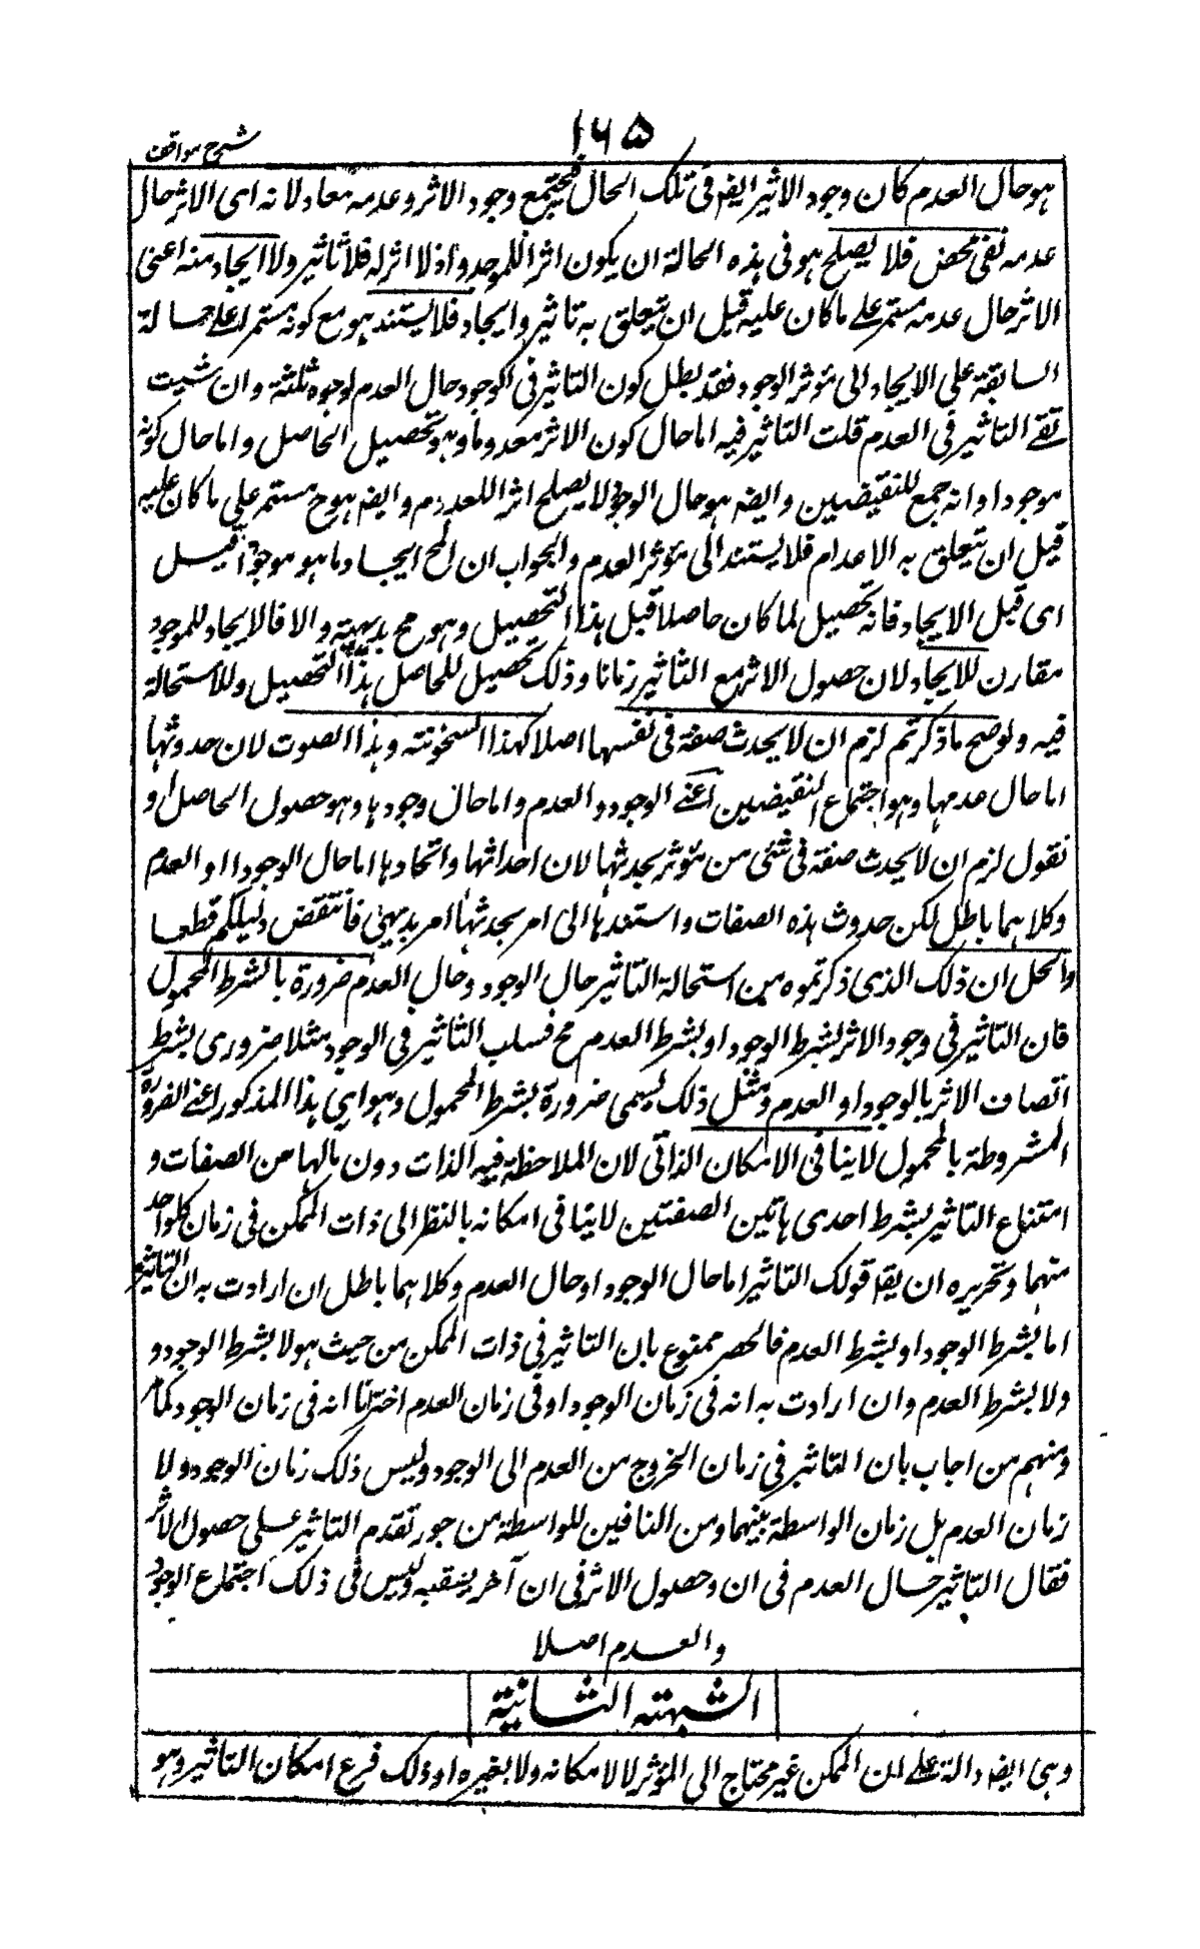 ۱۶۵
شرح مواقف
هو حال العدم كان وجود الاثر ايضا فى تلك الحال فيجتمع وجود الاثر وعدمه معا ولانه اى الاثر حال
عدمه نفى محض فلا يصلح هو فى هذه الحالة ان يكون اثرا للموجد واذ لا اثر له فلا تاثير ولا ايجاد منه اعنى
الاثر حال عدمه مستمر على ما كان عليه قبل ان يتعلق به تاثير وايجاد فلا يستند هو مع كونه مستمرا على حالة
السابقة على الايجاد الى مؤثر الوجود فقد بطل كون التاثير فى الوجود حال العدم لوجوه ثلثة وان شيت
نفى التاثير فى العدم قلت التاثير فيه اما حال كون الاثر معدوما وهو تحصيل الحاصل واما حال كونه
موجودا وانه جمع للنقيضين وايضه هو حال الوجود لا يصلح اثرا للعدم وايضه هوح مستمر على ما كان عليه
قبل ان يتعلق به الاعدام فلا يستند الى مؤثر العدم والجواب ان المح ايجاد ما هو موجود قبل
اى قبل الايجاد فانه تحصيل لما كان حاصلا قبل هذا التحصيل وهو مح بديهية والا فالايجاد للموجود
مقارن للايجاد لان حصول الاثر مع التاثير زمانا وذلك تحصيل للحاصل بهذا التحصيل ولا استحالة
فيه ولو صح ما ذكرتم لزم ان لا يحدث صفة فى نفسها اصلا كهذا السخونة وهذا الصوت لان حدوثها
اما حال عدمها وهو اجتماع النقيضين اعنى الوجود والعدم واما حال وجودها وهو حصول الحاصل او
نقول لزم ان لا يحدث صفة فى شئ من مؤثر يحدثها لان احداثها واتحادها اما حال الوجود او العدم
وكلاهما باطل لكن حدوث هذه الصفات واستنادها الى امر يحدثها امر بديهى فانتقض دليلكم قطعا
والحل ان ذلك الذى ذكرتموه من استحالة التاثير حال الوجود وحال العدم ضرورة بالشرط المحمول
فان التاثير فى وجود الاثر بشرط الوجود او بشرط العدم مح فسلب التاثير فى الوجود مثلا ضرورى بشرط
اتصاف الاثر بالوجود او العدم ومثل ذلك يسمى ضرورة بشرط المحمول وهو اى هذا المذكور اعنى الضرورة
المشروطة بالمحمول لا ينافى الامكان الذاتى لان الملاحظة فيه الذات دون مالها من الصفات و
امتناع التاثير بشرط احدى هاتين الصفتين لا ينافى امكانه بالنظر الى ذات الممكن فى زمان كل واحد
منهما وتحريره ان يقا قولك التاثير اما حال الوجود او حال العدم وكلاهما باطل ان ارادت به ان التاثير
اما بشرط الوجود او بشرط العدم فالحصر ممنوع بان التاثير فى ذات الممكن من حيث هو لا بشرط الوجود و
ولا بشرط العدم وان ارادت به انه فى زمان الوجود او فى زمان العدم اخترنا انه فى زمان الوجود كما مر
ومنهم من اجاب بان التاثير فى زمان الخروج من العدم الى الوجود وليس ذلك زمان الوجود ولا
زمان العدم بل زمان الواسطة بينهما ومن النافين للواسطة من جوز تقدم التاثير على حصول الاثر
فقال التاثير حال العدم فى ان وحصول الاثر فى ان آخر يعقبه وليس فى ذلك اجتماع الوجود
والعدم اصلا
الشبهته الثانية
وهى ايضه دالة على ان الممكن غير محتاج الى المؤثر لا لامكانه ولا لغيره او ذلك فرع امكان التاثير وهو